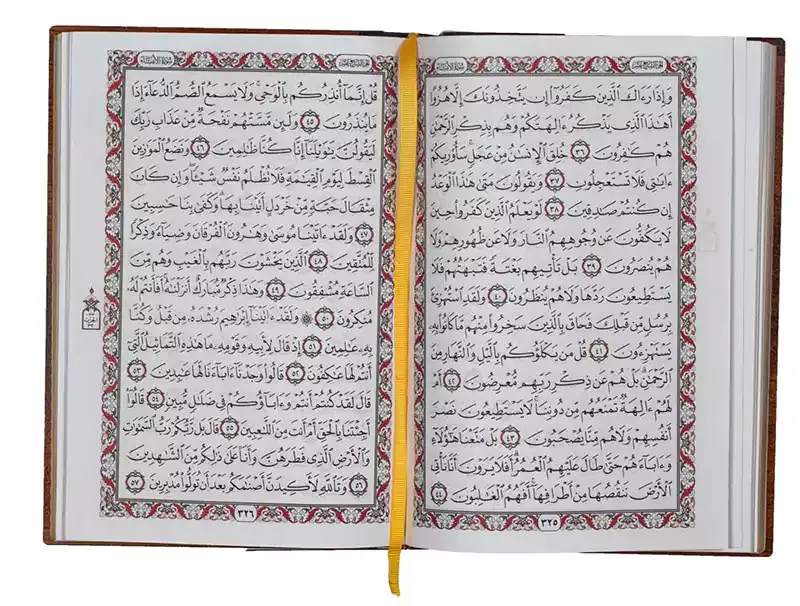 سُورَةُ الأَنبِيَاءِ
وَإِذَا رَءَاكَ ٱلَّذِينَ كَفَرُوٓا۟ إِن يَتَّخِذُونَكَ إِلَّا هُزُوًا
أَهَٰذَا ٱلَّذِى يَذْكُرُ ءَالِهَتَكُمْ وَهُم بِذِكْرِ ٱلرَّحْمَٰنِ
هُمْ كَٰفِرُونَ ٣٦ خُلِقَ ٱلْإِنسَٰنُ مِنْ عَجَلٍ سَأُو۟رِيكُمْ
ءَايَٰتِى فَلَا تَسْتَعْجِلُونِ ٣٧ وَيَقُولُونَ مَتَىٰ هَٰذَا ٱلْوَعْدُ
إِن كُنتُمْ صَٰدِقِينَ ٣٨ لَوْ يَعْلَمُ ٱلَّذِينَ كَفَرُوا۟ حِينَ
لَا يَكُفُّونَ عَن وُجُوهِهِمُ ٱلنَّارَ وَلَا عَن ظُهُورِهِمْ وَلَا
هُمْ يُنصَرُونَ ٣٩ بَلْ تَأْتِيهِم بَغْتَةً فَتَبْهَتُهُمْ فَلَا
يَسْتَطِيعُونَ رَدَّهَا وَلَا هُمْ يُنظَرُونَ ٤٠ وَلَقَدِ ٱسْتُهْزِئَ
بِرُسُلٍ مِّن قَبْلِكَ فَحَاقَ بِٱلَّذِينَ سَخِرُوا۟ مِنْهُم مَّا كَانُوا۟ بِهِۦ
يَسْتَهْزِءُونَ ٤١ قُلْ مَن يَكْلَؤُكُم بِٱلَّيْلِ وَٱلنَّهَارِ مِنَ
ٱلرَّحْمَٰنِ بَلْ هُمْ عَن ذِكْرِ رَبِّهِم مُّعْرِضُونَ ٤٢ أَمْ
لَهُمْ ءَالِهَةٌ تَمْنَعُهُم مِّن دُونِنَا لَا يَسْتَطِيعُونَ نَصْرَ
أَنفُسِهِمْ وَلَا هُم مِّنَّا يُصْحَبُونَ ٤٣ بَلْ مَتَّعْنَا هَٰٓؤُلَآءِ
وَءَابَآءَهُمْ حَتَّىٰ طَالَ عَلَيْهِمُ ٱلْعُمُرُ أَفَلَا يَرَوْنَ أَنَّا نَأْتِى
ٱلْأَرْضَ نَنقُصُهَا مِنْ أَطْرَافِهَآ أَفَهُمُ ٱلْغَٰلِبُونَ ٤٤
٣٢٥
سُورَةُ الأَنبِيَاءِ
قُلْ إِنَّمَآ أُنذِرُكُم بِٱلْوَحْىِ وَلَا يَسْمَعُ ٱلصُّمُّ ٱلدُّعَآءَ إِذَا
مَا يُنذَرُونَ ٤٥ وَلَئِن مَّسَّتْهُمْ نَفْحَةٌ مِّنْ عَذَابِ رَبِّكَ
لَيَقُولُنَّ يَٰوَيْلَنَآ إِنَّا كُنَّا ظَٰلِمِينَ ٤٦ وَنَضَعُ ٱلْمَوَٰزِينَ
ٱلْقِسْطَ لِيَوْمِ ٱلْقِيَٰمَةِ فَلَا تُظْلَمُ نَفْسٌ شَيْـًٔا وَإِن كَانَ
مِثْقَالَ حَبَّةٍ مِّنْ خَرْدَلٍ أَتَيْنَا بِهَا وَكَفَىٰ بِنَا حَٰسِبِينَ
٤٧ وَلَقَدْ ءَاتَيْنَا مُوسَىٰ وَهَٰرُونَ ٱلْفُرْقَانَ وَضِيَآءً وَذِكْرًا
لِّلْمُتَّقِينَ ٤٨ ٱلَّذِينَ يَخْشَوْنَ رَبَّهُم بِٱلْغَيْبِ وَهُم مِّنَ
ٱلسَّاعَةِ مُشْفِقُونَ ٤٩ وَهَٰذَا ذِكْرٌ مُّبَارَكٌ أَنزَلْنَٰهُ أَفَأَنتُمْ لَهُۥ
مُنكِرُونَ ٥٠ ۞ وَلَقَدْ ءَاتَيْنَآ إِبْرَٰهِيمَ رُشْدَهُۥ مِن قَبْلُ وَكُنَّا
بِهِۦ عَٰلِمِينَ ٥١ إِذْ قَالَ لِأَبِيهِ وَقَوْمِهِۦ مَا هَٰذِهِ ٱلتَّمَاثِيلُ ٱلَّتِىٓ
أَنتُمْ لَهَا عَٰكِفُونَ ٥٢ قَالُوا۟ وَجَدْنَآ ءَابَآءَنَا لَهَا عَٰبِدِينَ ٥٣
قَالَ لَقَدْ كُنتُمْ أَنتُمْ وَءَابَآؤُكُمْ فِى ضَلَٰلٍ مُّبِينٍ ٥٤ قَالُوٓا۟
أَجِئْتَنَا بِٱلْحَقِّ أَمْ أَنتَ مِنَ ٱللَّٰعِبِينَ ٥٥ قَالَ بَل رَّبُّكُمْ رَبُّ ٱلسَّمَٰوَٰتِ
وَٱلْأَرْضِ ٱلَّذِى فَطَرَهُنَّ وَأَنَا۠ عَلَىٰ ذَٰلِكُم مِّنَ ٱلشَّٰهِدِينَ
٥٦ وَتَٱللَّهِ لَأَكِيدَنَّ أَصْنَٰمَكُم بَعْدَ أَن تُوَلُّوا۟ مُدْبِرِينَ ٥٧
٣٢٦